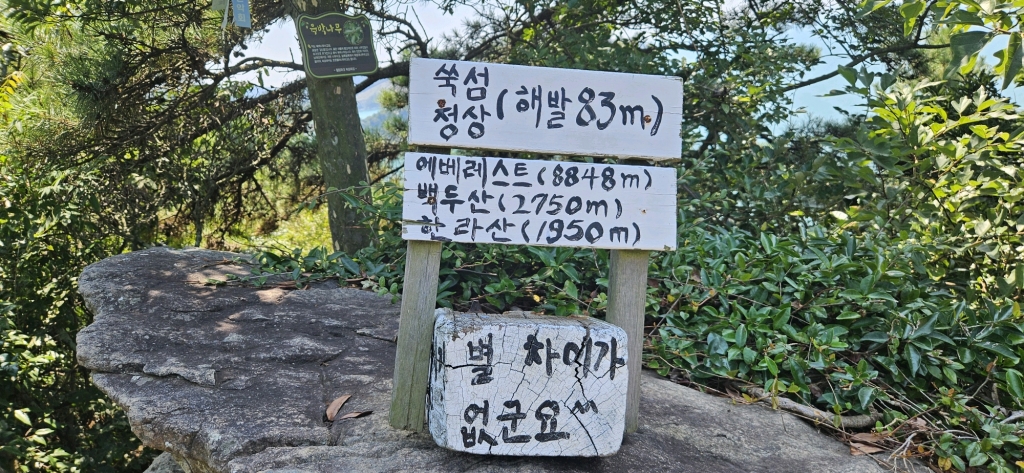 육박나무
쑥섬
정상 (해발 83m)
에베레스트(8848m)
백두산(2750m)
한라산(1950m)
별 차이가
없군요^^